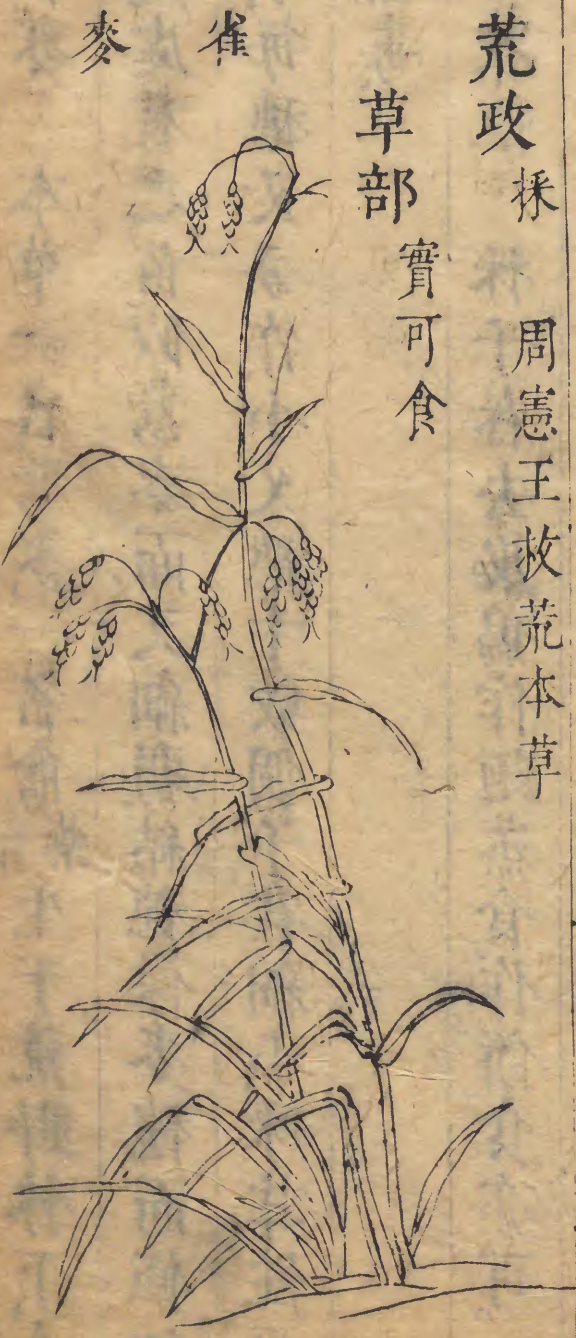 荒政 採 周憲王救荒本草
草部 實可食
雀麥